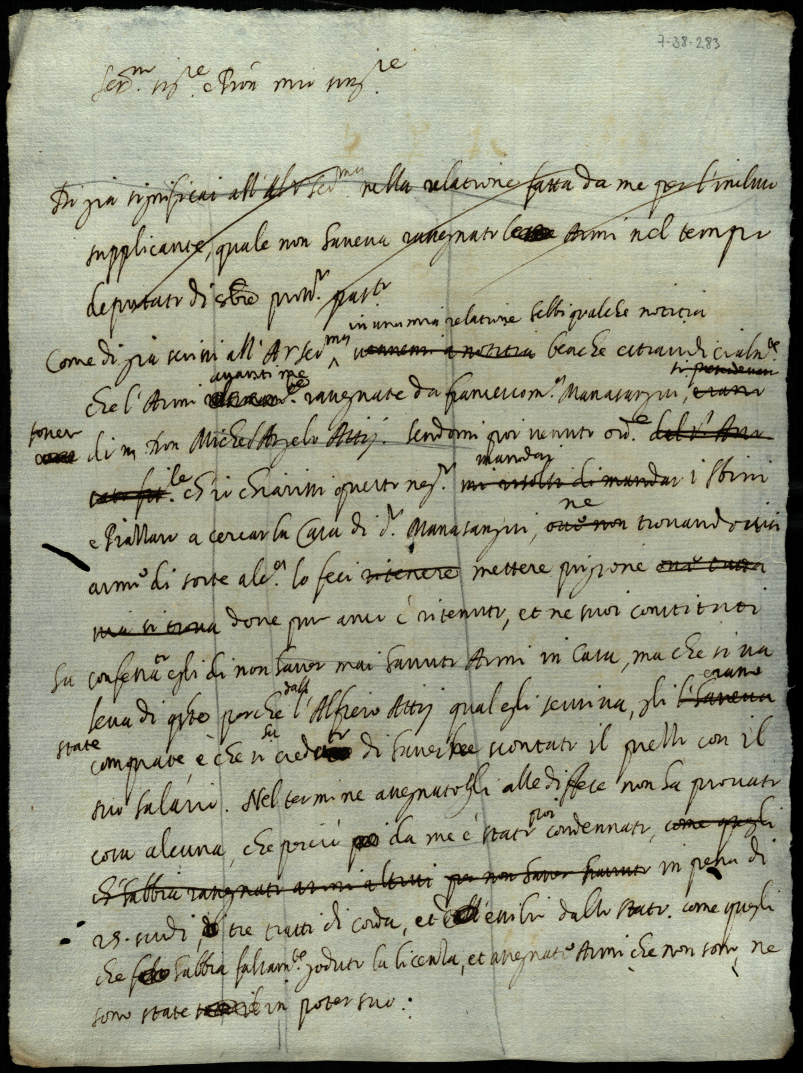 7-38-283
Ser.mo sig.re e Pron mio sing.re
Di già significai all' Al. Ser.ma nella relatione fatta da me per l'incluso
supplicante, quale non haveva rasegnato le Armi nel tempo
deputato di
Come di già scrissi all' A. Ser.ma in una mia relatione hebbi qualche notitia benche estraiudicialm.te
che l'Armi avanti me rasegnate da francescom.a Manasangui, si pretendevan
esser di m. Don Michel'Angelo Attij. Sendomi poi venuto ord.e
che io chiarissi questo neg.o mandai i sbirri
e Piazzaro a cercar la Casa di d.o Manasangui, ne trovandovisi
armi di sorte alc.a lo feci ritenere mettere prigione
ma si trova dove pur anco è ritenuto, et ne suoi constituti
ha confessato egli di non haver mai havuto Armi in Casa, ma che si va
leva di q.te perche dall' l'Alfiero Attij qual egli serviva, gli erano
state comprate è che si ha creduto di haverle scontate il prezzo con il
suo salario. Nel termine asegnatogli alle difese non ha provato
cosa alcuna, che perciò da me è stato poi condennato, come quegli
ch'habbia rasegnato armi altrui per non haver havuto in pena di
25. scudi, tre tratti di corda, et esilio dallo stato. come quegli
che habbia falsam.te goduto la licenza, et asegnato Armi che non sono, ne
sono state in poter suo: